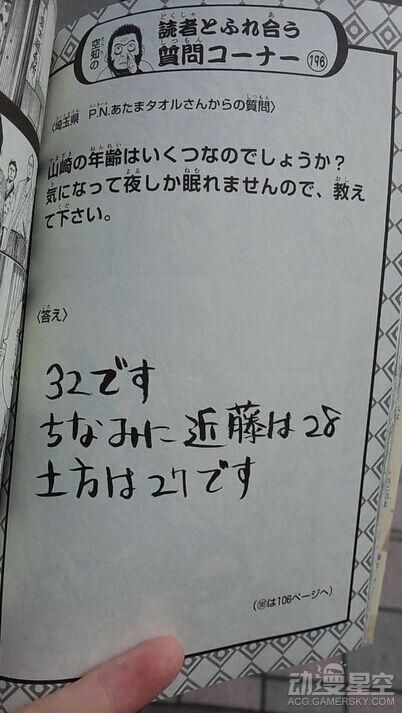 空知の
読者とふれ合う
質問コーナー 196
〈埼玉県 P.N.あたまタオルさんからの質問〉
山崎の年齢はいくつなのでしょうか?
気になって夜しか眠れませんので、教え
て下さい。
〈答え〉
32です
ちなみに近藤は28
土方は27です
は106ページへ)
動漫星空
ACG.GAMERSKY.COM